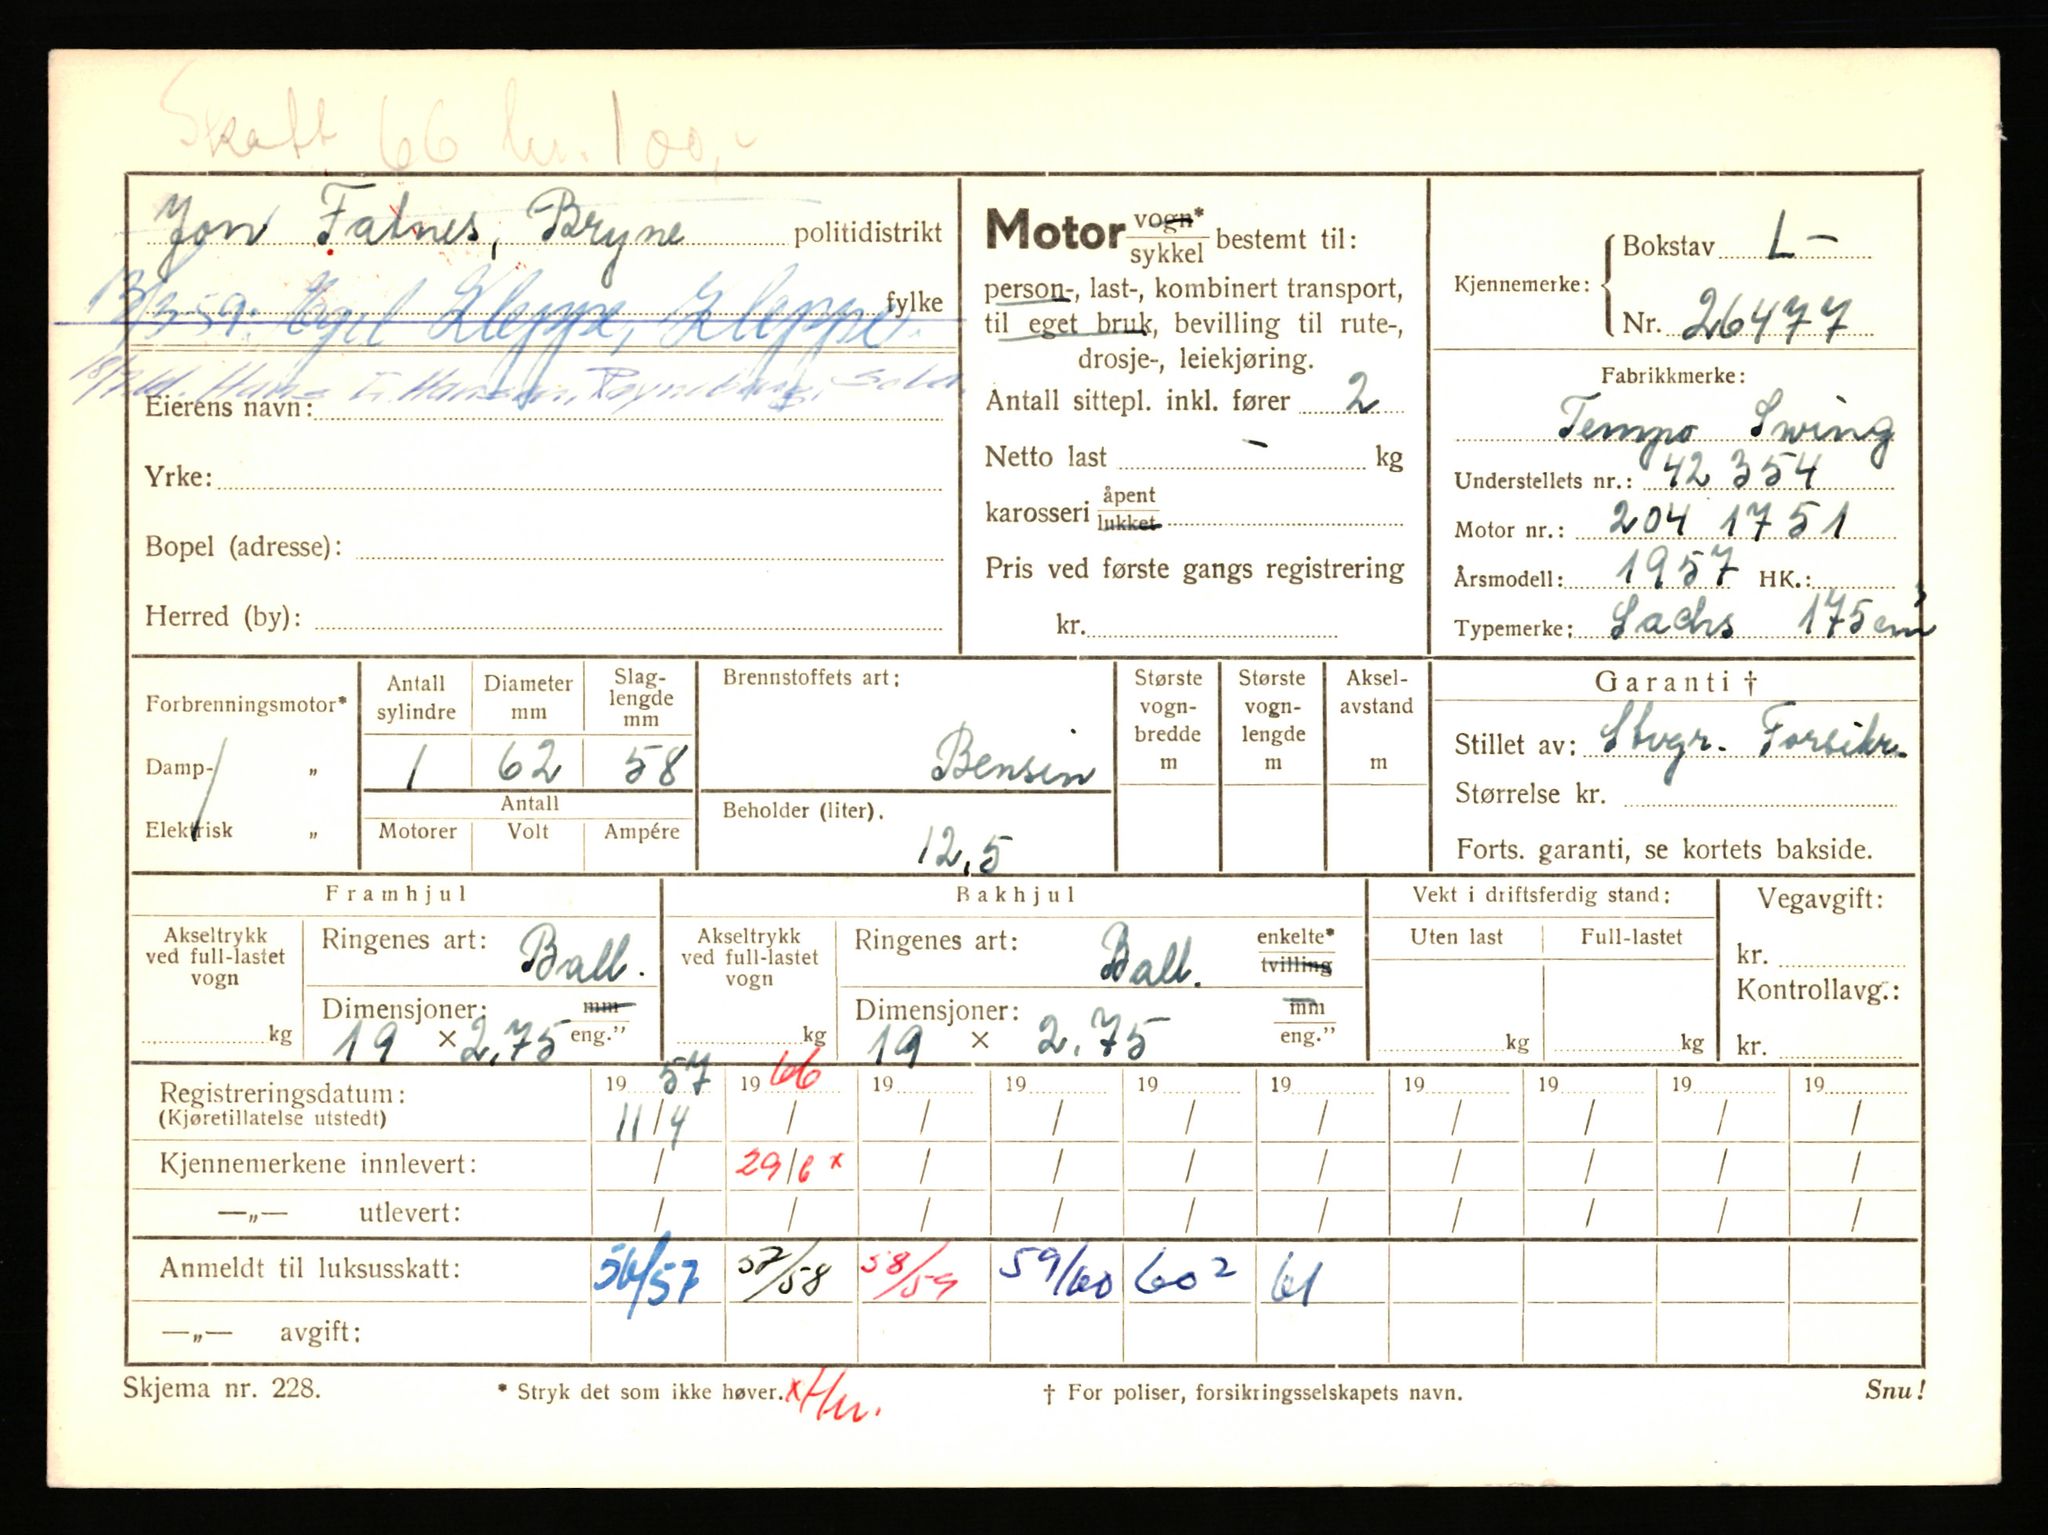 Skatt 66 kr. 100,-
Jon Fatnes, Bryne politidistrikt
13/3 59. Egil Kleppe, Kleppe. fylke
Hans Hansen, Røyneberg, Sola.
Eierens navn:
Yrke:
Bopel (adresse):
Herred (by):
Motor vogn* sykkel bestemt til:
person-, last-, kombinert transport,
til eget bruk, bevilling til rute-,
drosje-, leiekjøring.
Antall sittepl. inkl. fører 2
Netto last - kg
karosseri åpent lukket
Pris ved første gangs registrering
kr.
Kjennemerke: Bokstav L-
Nr. 26477
Fabrikkmerke:
Tempo Swing
Understellets nr.: 42 354
Motor nr.: 204 1751
Årsmodell: 1957 HK.:
Typemerke: Sachs 175 cm³
Forbrenningsmotor*
Damp- „
Elektrisk „
Antall sylindre
Diameter mm
Slag-lengde mm
1 62 58
Antall
Motorer Volt Ampére
Brennstoffets art:
Bensin
Beholder (liter).
12,5
Største vogn-bredde m
Største vogn-lengde m
Aksel-avstand m
Garanti †
Stillet av: Stvgr. Forsikr.
Størrelse kr.
Forts. garanti, se kortets bakside.
Framhjul
Akseltrykk ved full-lastet vogn
kg
Ringenes art: Ball.
Dimensjoner: mm
19 × 2,75 eng."
Bakhjul
Akseltrykk ved full-lastet vogn
kg
Ringenes art: Ball. enkelte* tvilling
Dimensjoner: mm
19 × 2.75 eng."
Vekt i driftsferdig stand:
Uten last Full-lastet
kg kg
Vegavgift:
kr.
Kontrollavg.:
kr.
Registreringsdatum: 19 57 19 66 19 19 19 19 19 19 19 19
(Kjøretillatelse utstedt) 11/4 / / / / / / / / /
Kjennemerkene innlevert: / 29/6 x / / / / / / / /
—„— utlevert: / / / / / / / / / /
Anmeldt til luksusskatt: 56/57 57/58 58/59 59/60 60² 61
—„— avgift:
Skjema nr. 228. * Stryk det som ikke høver. † For poliser, forsikringsselskapets navn. Snu!